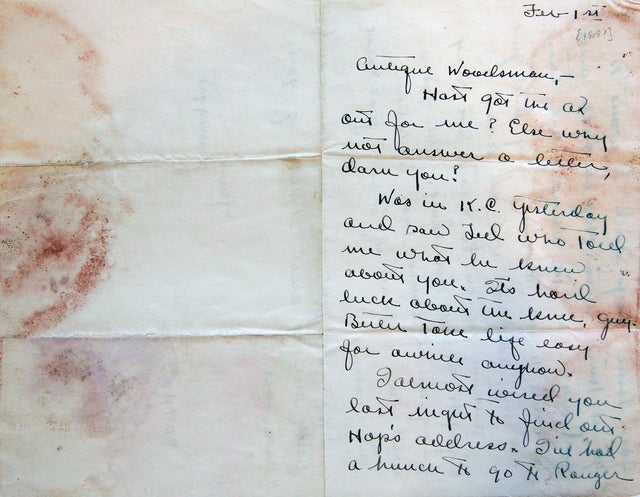 Feb 1st
[1919?]
Antique Woodsman,-
Hast got the ax
out for me? Else why
not answer a letter,
darn you?
Was in K.C. yesterday
and saw Ted who told
me what he knew
about you. Its hard
luck about the knee, guy.
Better take life easy
for awhile anyhow.
I almost wired you
last night to find out
Hop's address. I've had
a hunch to go to Ranger